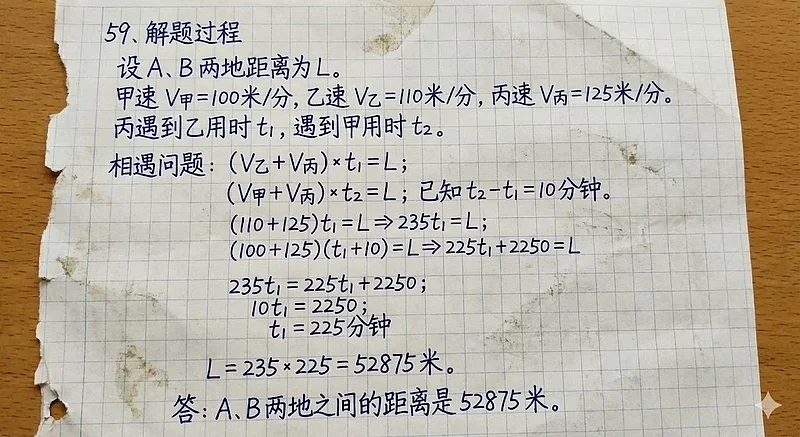 59、解题过程
设A、B两地距离为L。
甲速V甲=100米/分,乙速V乙=110米/分,丙速V丙=125米/分。
丙遇到乙用时t₁,遇到甲用时t₂。
相遇问题:(V乙+V丙)×t₁=L;
(V甲+V丙)×t₂=L;已知t₂-t₁=10分钟。
(110+125)t₁=L⇒235t₁=L;
(100+125)(t₁+10)=L⇒225t₁+2250=L
235t₁=225t₁+2250;
10t₁=2250;
t₁=225分钟
L=235×225=52875米。
答:A、B两地之间的距离是52875米。